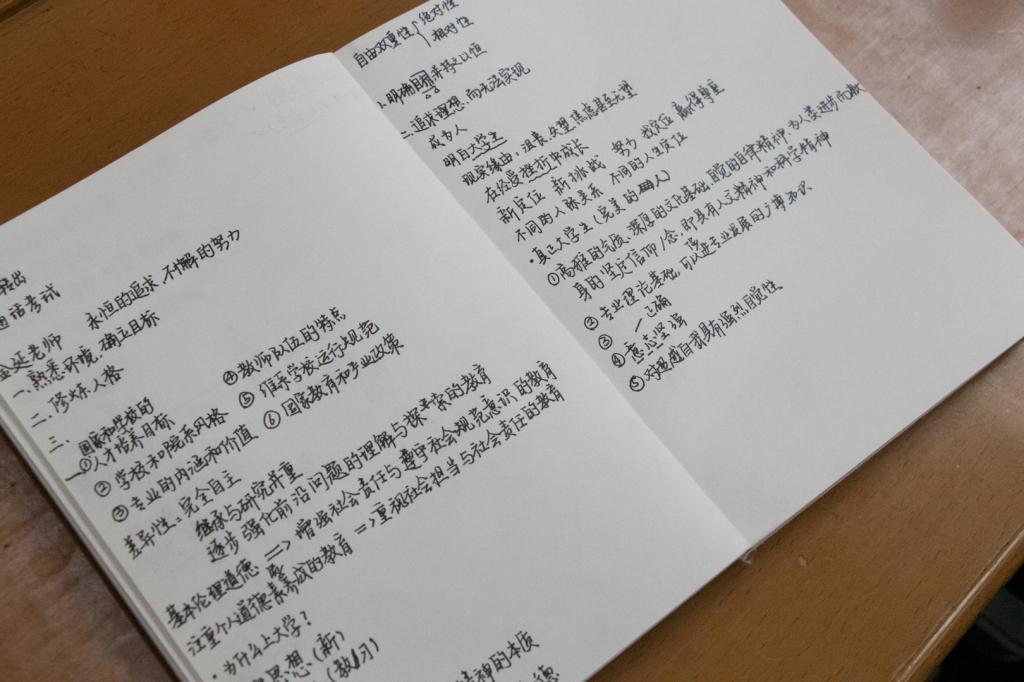 通话考试
老师 永恒的追求、不懈的努力
一、熟悉环境,确立目标
二、修炼人格
三、
国家和学校的
①人才培养目标 ④教师队伍的特点
②学校和院系风格 ⑤维系学校运行与规范
③专业的内涵和价值 ⑥国家教育和产业政策
差异性:完全自主
继承与研究并重
逐步强化前沿问题的理解与探索的教育
基本伦理道德 => 增强社会责任与遵守社会规范意识的教育
注重个人道德素养成的教育 => 重视社会担当与社会责任的教育
·为什么上大学?
思想(新)
(教/习)
精神的本质
德
自由双重性 绝对性
相对性
明确目标并持之以恒
二、追求理想,而无法实现
成为人
明白大学生
现实缘由:沮丧、失望、焦虑甚至
在经受挫折中成长
新定位 新挑战 努力 找定位 赢得尊重
不同的人际关系 不同的人生定位
·真正大学生(完美的人)
①高雅的气质、深厚的文化基础、自觉的自律精神,为人类进步而
身的坚定信仰/念,即具有人文精神和科学精神
②专业理论基础,可以进专业发展的广博知识
③正确
④意志坚强
⑤对超越自我具有强烈自觉性